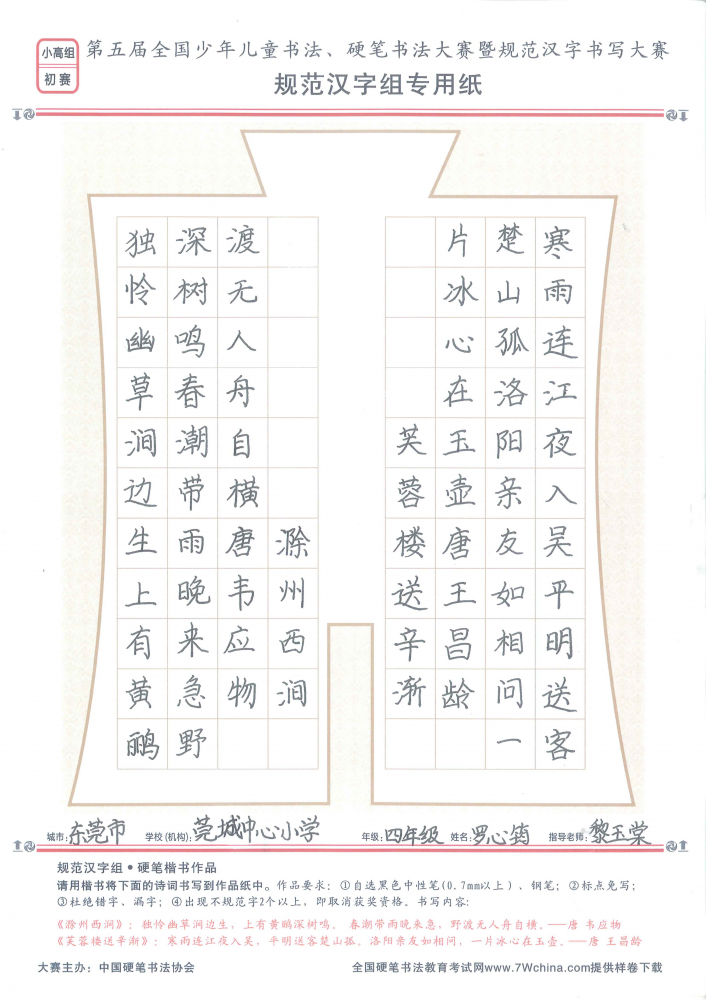 小高组
初赛
第五届全国少年儿童书法、硬笔书法大赛暨规范汉字书写大赛
规范汉字组专用纸
独怜幽草涧边生上有黄鹂
深树鸣春潮带雨晚来急野
渡无人舟自横唐韦应物
滁州西涧
寒雨连江夜入吴平明送客
楚山孤洛阳亲友如相问一
片冰心在玉壶唐王昌龄
芙蓉楼送辛渐
城市：东莞市 学校(机构)：莞城中心小学 年级：四年级 姓名：罗心 指导老师：黎玉棠
规范汉字组●硬笔楷书作品
请用楷书将下面的诗词书写到作品纸中。作品要求：①自选黑色中性笔(0.7mm以上)、钢笔；②标点免写；
③杜绝错字、漏字；④出现不规范字2个以上，即取消获奖资格。书写内容：
《滁州西涧》：独怜幽草涧边生，上有黄鹂深树鸣。 春潮带雨晚来急，野渡无人舟自横。——唐 韦应物
《芙蓉楼送辛渐》：寒雨连江夜入吴，平明送客楚山孤。洛阳亲友如相问，一片冰心在玉壶。——唐 王昌龄
大赛主办：中国硬笔书法协会 全国硬笔书法教育考试网www.7Wchina.com提供样卷下载